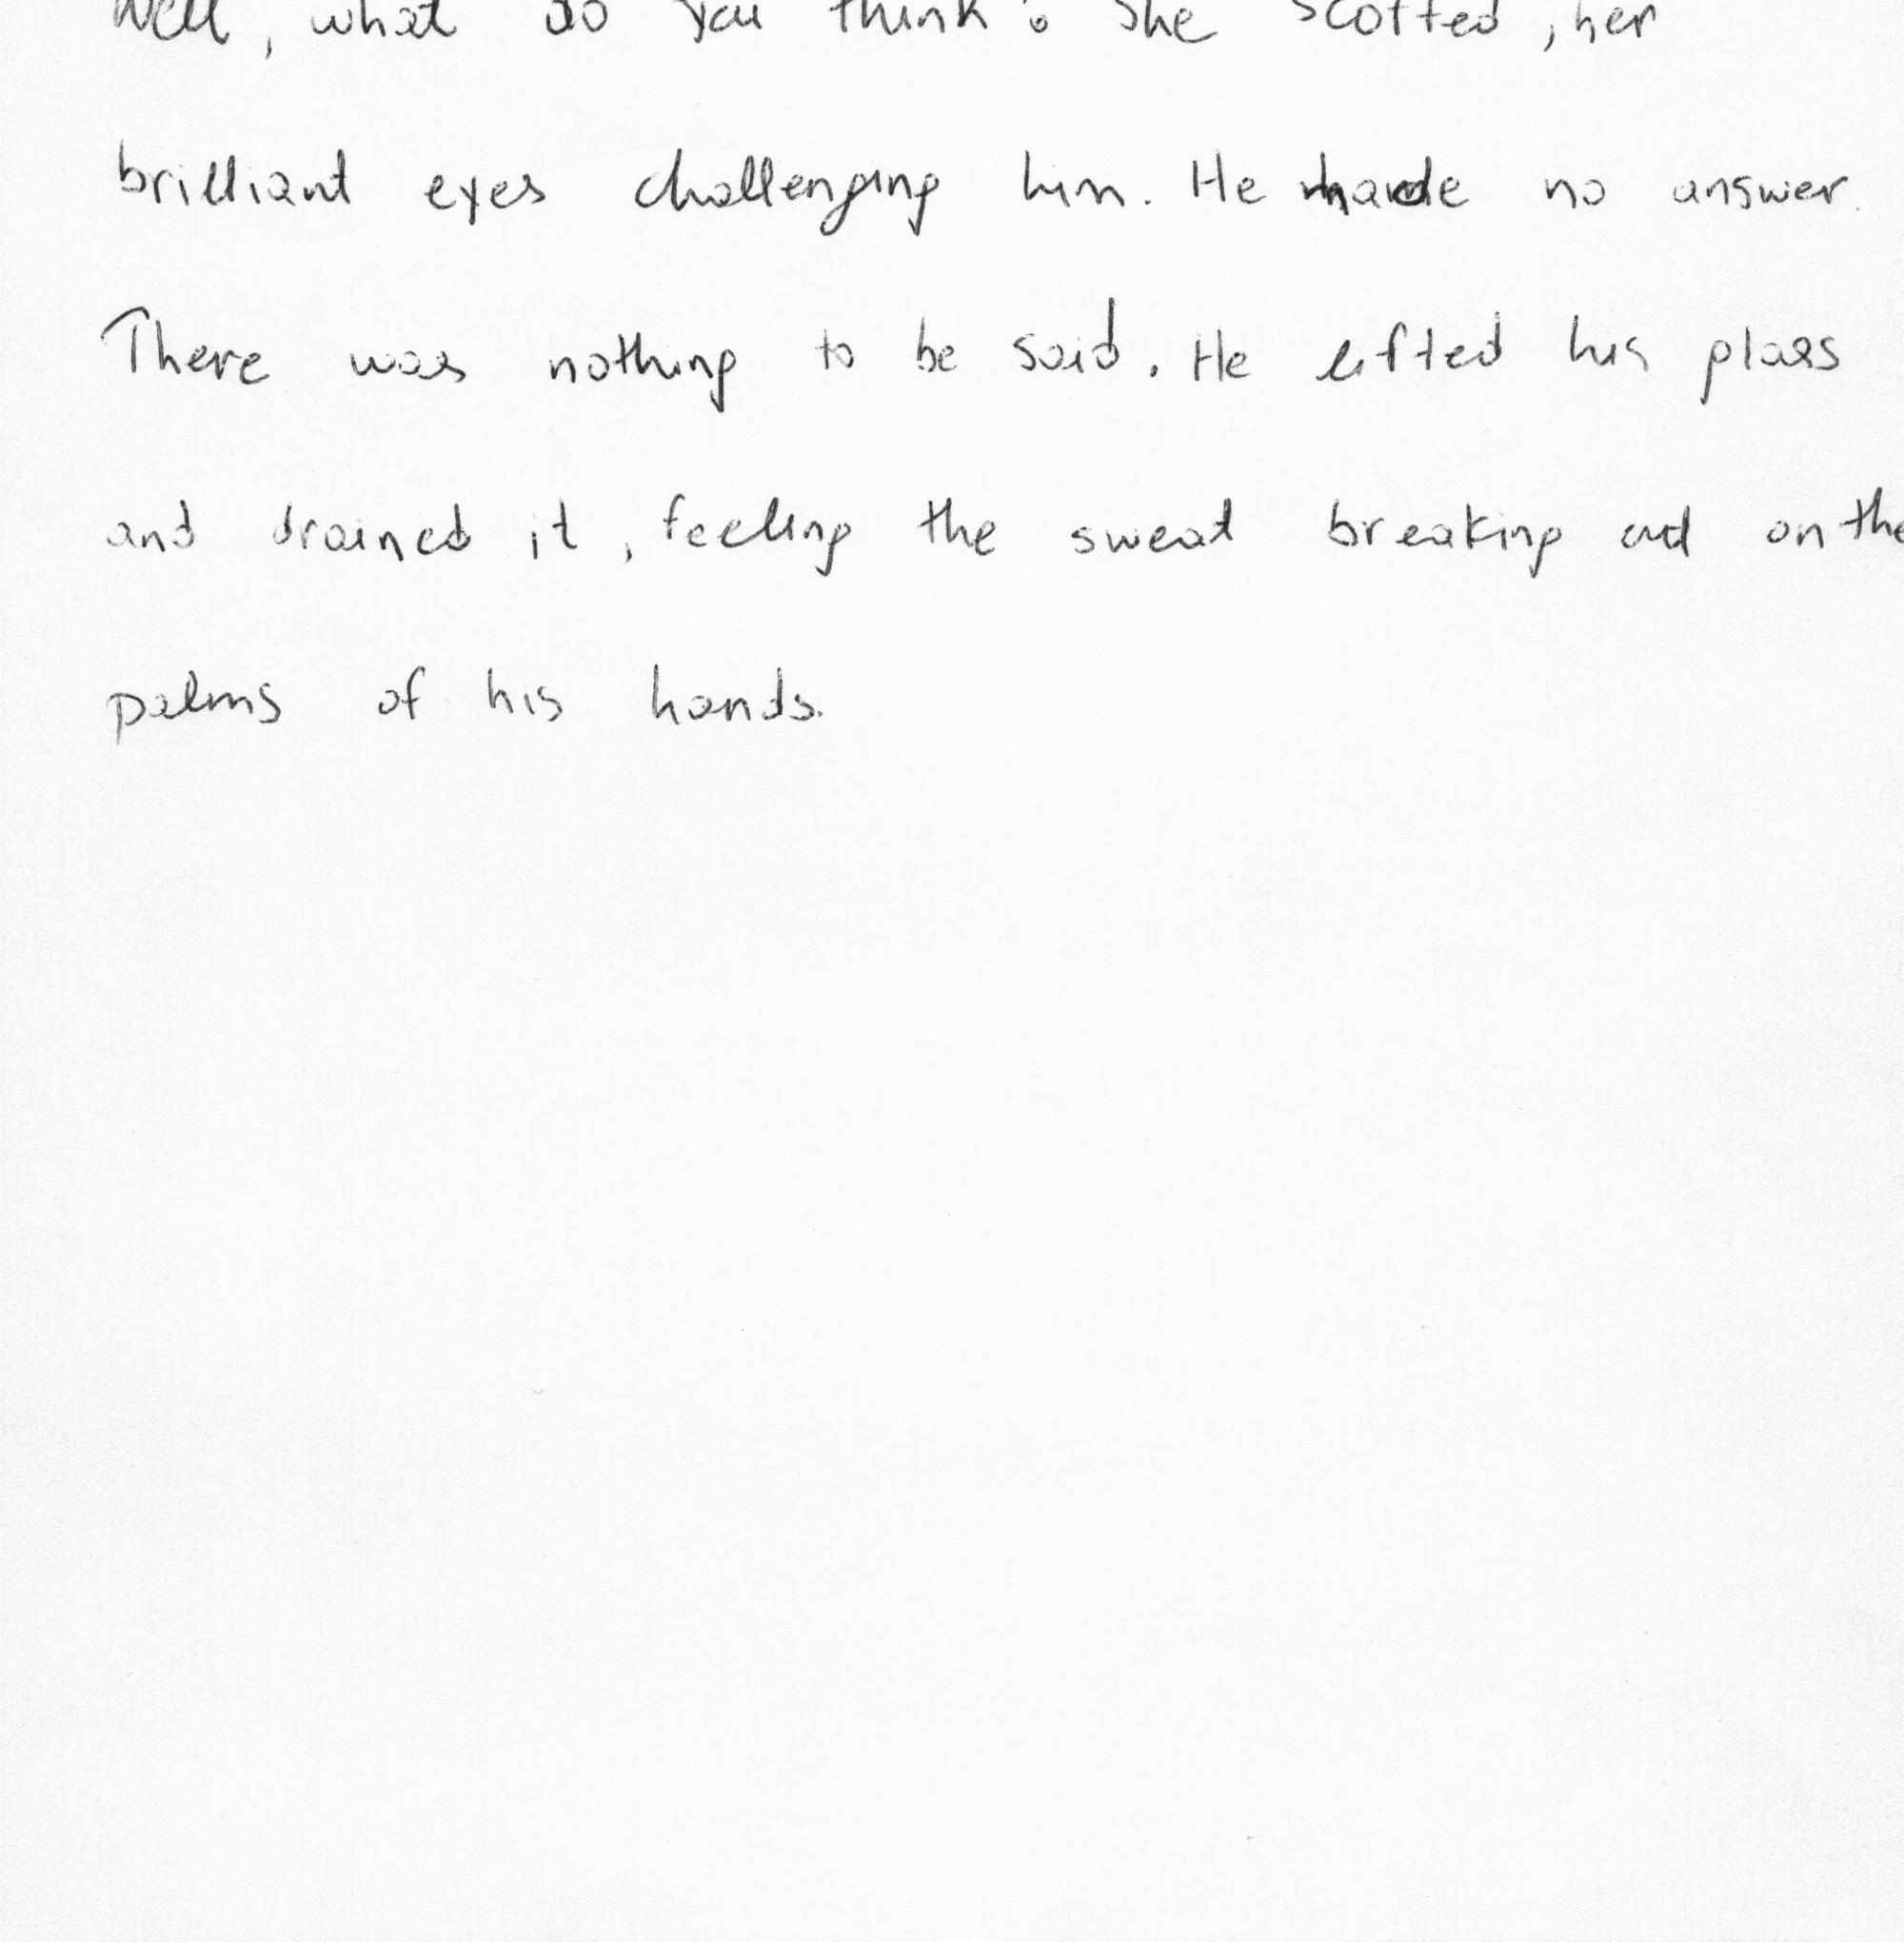 Well, what do you think? She scoffed, her
brilliant eyes challenging him. He made no answer.
There was nothing to be said. He lifted his glass
and drained it, feeling the sweat breaking out on the
palms of his hands.